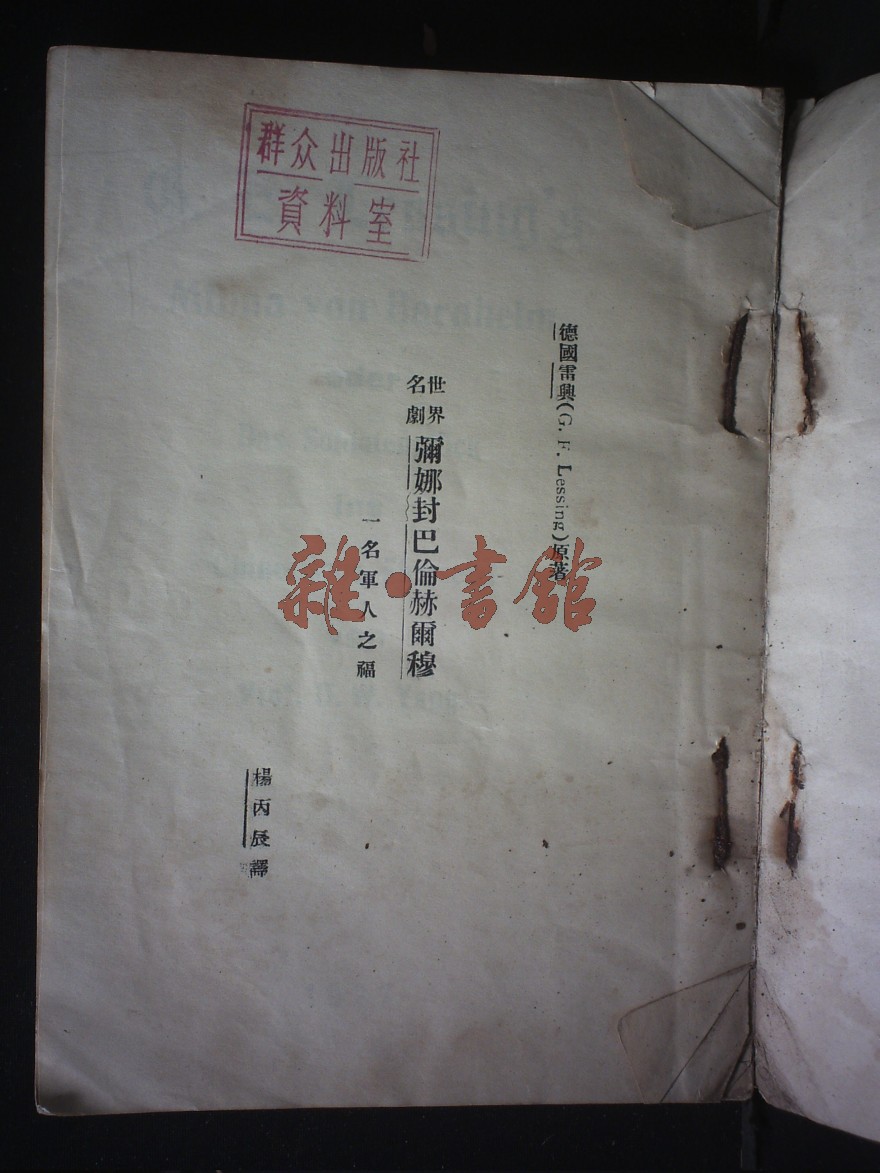 群众出版社
資料室
德國雷興(G. F. Lessing)原著
世界
名劇
彌娜封巴倫赫爾穆
一名軍人之福
楊丙辰譯
雜·書館